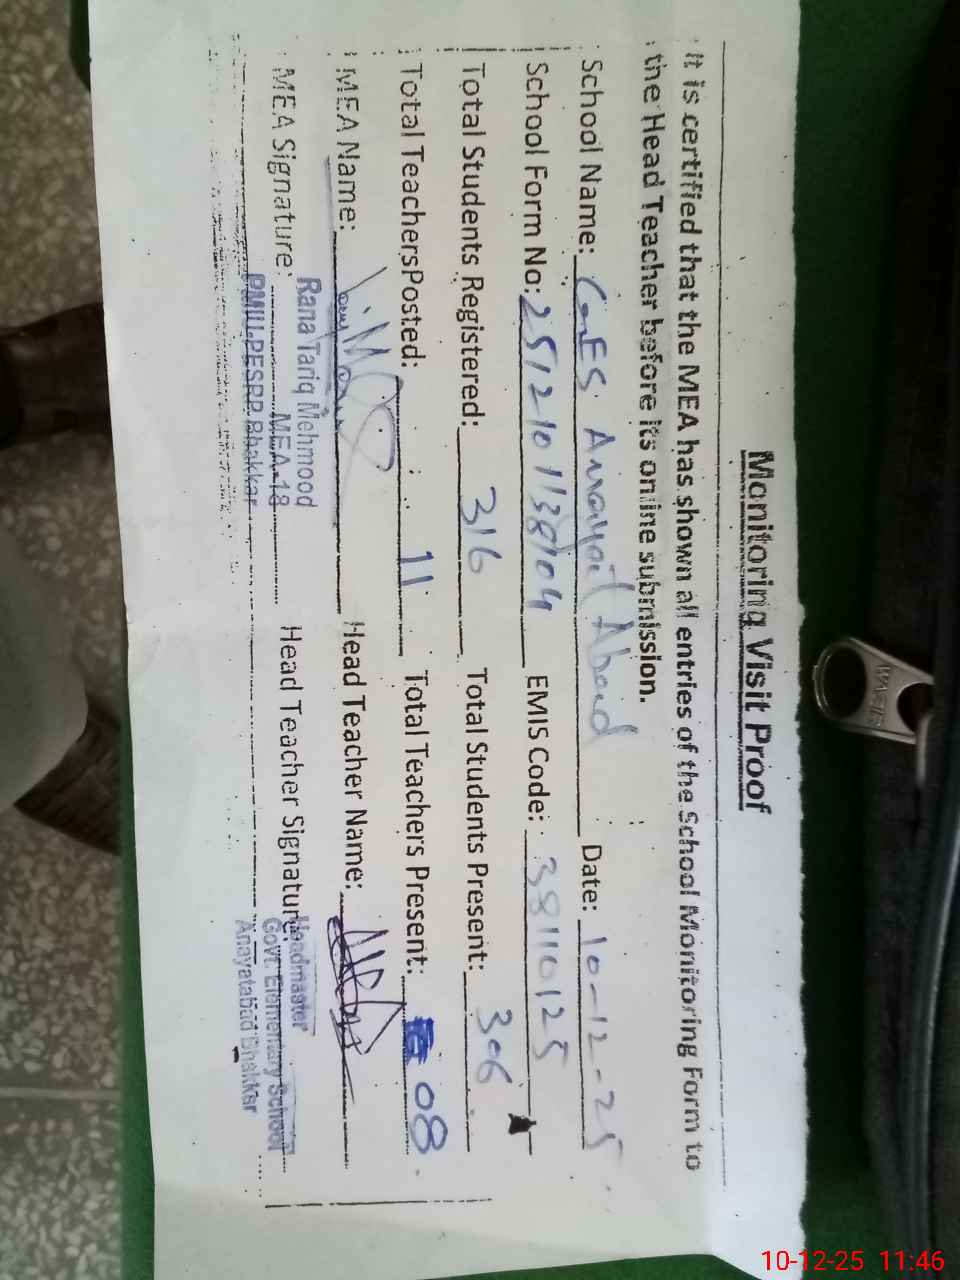 Monitoring Visit Proof
It is certified that the MEA has shown all entries of the School Monitoring Form to
the Head Teacher before its online submission.
School Name: GES Anayat Abad Date: 10-12-25
School Form No: EMIS Code: 38110125
Total Students Registered: 316 Total Students Present: 306
Total Teachers Posted: 11 Total Teachers Present: 08
MEA Name: Head Teacher Name:
MEA Signature: Head Teacher Signature:
Rana Tariq Mehmood
MEA-18
PMIU-PESRP Bhakkar
Headmaster
Govt. Elementary School
Anayatabad Bhakkar
10-12-25 11:46